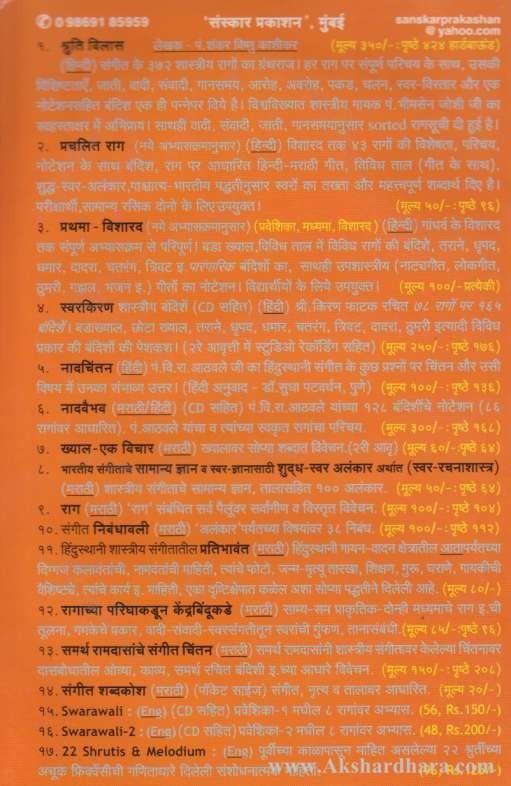 ✆ 0 98691 85959 'संस्कार प्रकाशन', मुंबई sanskarprakashan
@ yahoo.com
१. श्रुति विलास लेखक - पं.शंकर विष्णु काशीकर (मूल्य ३५०/-: पृष्ठे ४२४ हार्डबाऊंड)
(हिन्दी) संगीत के ३७२ शास्त्रीय रागों का ग्रंथराज! हर राग पर संपूर्ण परिचय के साथ, उसकी
विशिष्टताएँ, जाती, वादी, संवादी, गानसमय, आरोह, अवरोह, पकड, चलन, स्वर-विस्तार और एक
नोटेशनसहित बंदिश एक ही पन्नेपर दिये है! विश्वविख्यात शास्त्रीय गायक पं.भीमसेन जोशी जी का
स्वहस्ताक्षर में अभिप्राय! साथही वादी, संवादी, जाती, गानसमयानुसार sorted रागसूची दी हुई है!
२. प्रचलित राग (नये अभ्यासक्रमानुसार) (हिन्दी) विशारद तक ४३ रागों की विशेषता, परिचय,
नोटेशन के साथ बंदिश, राग पर आधारित हिन्दी-मराठी गीत, विविध ताल (गीत के साथ),
शुद्ध-स्वर-अलंकार,पाश्चात्य-भारतीय पद्धतीनुसार स्वरों का तख्ता और महत्त्वपूर्ण शब्दार्थ दिए है।
परीक्षार्थी,सामान्य रसिक दोनो के लिए उपयुक्त! (मूल्य ५०/-: पृष्ठे ९६)
३. प्रथमा - विशारद (नये अभ्यासक्रमानुसार) (प्रवेशिका, मध्यमा, विशारद) (हिन्दी) गांधर्व के विशारद
तक संपूर्ण अभ्यासक्रम से परिपूर्ण! बडा ख्याल,विविध ताल में विविध रागों की बंदिशे, तराने, धृपद,
धमार, दादरा, चतरंग, त्रिवट इ.पारंपारिक बंदिशों का, साथही उपशास्त्रीय (नाट्यगीत, लोकगीत,
ठुमरी, गझल, भजन इ.) गीतों का नोटेशन! विद्यार्थीयों के लिये उपयुक्त! (मूल्य १००/-प्रत्येकी)
४. स्वरकिरण शास्त्रीय बंदिशें (CD सहित) (हिंदी) श्री.किरण फाटक रचित ७८ रागों पर १६५
बंदिशें! बडाख्याल, छोटा ख्याल, तराने, धृपद, धमार, चतरंग, त्रिवट, दादरा, ठुमरी इत्यादी विविध
प्रकार की बंदिशों की पेशकश! (२रे आवृत्ती में स्टुडिओ रेकॉर्डिंग सहित) (मूल्य २५०/-: पृष्ठे १७६)
५. नादचिंतन (हिंदी) पं.वि.रा.आठवले जी का हिंदुस्थानी संगीत के कुछ प्रश्नों पर चिंतन और उसी
विषय में उनका संभाव्य उत्तर! (हिंदी अनुवाद - डॉ.सुधा पटवर्धन, पुणे) (मूल्य १००/-: पृष्ठे १३६)
६. नादवैभव (मराठी/हिंदी) (CD सहित) पं.वि.रा.आठवले यांच्या १२८ बंदिशींचे नोटेशन (८६
रागांवर आधारित). पं.आठवले यांचा व त्यांच्या स्वकृत रागांचा परिचय. (मूल्य ३००/-: पृष्ठे १६८)
७. ख्याल-एक विचार (मराठी) ख्यालावर सोप्या शब्दात विवेचन.(२री आवृ) (मूल्य ६०/-:पृष्ठे ६४)
८. भारतीय संगीताचे सामान्य ज्ञान व स्वर-ज्ञानासाठी शुद्ध-स्वर अलंकार अर्थात (स्वर-रचनाशास्त्र)
(मराठी) शास्त्रीय संगीताचे सामान्य ज्ञान, तालासहित १०० अलंकार. (मूल्य ५०/-: पृष्ठे ६४)
९. राग (मराठी) 'राग' संबंधित सर्व पैलूंवर सर्वांगीण व विस्तृत विवेचन. (मूल्य १००/-: पृष्ठे १०४)
१०. संगीत निबंधावली (मराठी) 'अलंकार'पर्यंतच्या विषयांवर ३८ निबंध. (मूल्य १००/-: पृष्ठे ११२)
११. हिंदुस्थानी शास्त्रीय संगीतातील प्रतिभावंत (मराठी) हिंदुस्थानी गायन-वादन क्षेत्रातील आतापर्यंतच्या
दिग्गज कलावंतांची, नामवंतांची माहिती, त्यांचे फोटो. जन्म-मृत्यू तारखा, शिक्षण, गुरू, घराणे, गायकीची
वैशिष्ट्ये, त्यांचे कार्य इ. माहिती, एका दृष्टिक्षेपात कळेल अशा सोप्या पद्धतीने दिलेली आहे. (मूल्य ८०/-)
१२. रागाच्या परिघाकडून केंद्रबिंदूकडे (मराठी) साम्य-सम प्राकृतिक-दोन्ही मध्यमाचे राग इ.ची
तूलना, गमकेचे प्रकार, वादी-संवादी-स्वरसंगतीतून स्वरांची गुंफण, तानासंबंधी.(मूल्य ८५/-:पृष्ठे ९६)
१३. समर्थ रामदासांचे संगीत चिंतन (मराठी) समर्थ रामदासांनी शास्त्रीय संगीतावर केलेल्या चिंतनावर
दासबोधातील ओव्या, काव्य, समर्थ रचित बंदिशी इ.च्या आधारे विवेचन. (मूल्य १५०/-: पृष्ठे २०८)
१४. संगीत शब्दकोश (मराठी) (पॉकेट साईज) संगीत, नृत्य व तालावर आधारित. (मूल्य २०/-)
१५. Swarawali : (Eng) (CD सहित) प्रवेशिका-१ मधील ८ रागांवर अभ्यास. (56, Rs.150/-)
१६. Swarawali-2 : (Eng) (CD सहित) प्रवेशिका-२ मधील ८ रागांवर अभ्यास. (48, Rs.200/-)
१७. 22 Shrutis & Melodium : (Eng) पूर्वीच्या काळापासून नाहित असलेल्या २२ श्रुतींच्या
अचूक फ्रिक्वेंसीची गणिताधारे दिलेली संशोधनात्मक माहिती.
www.Akshardhara.com